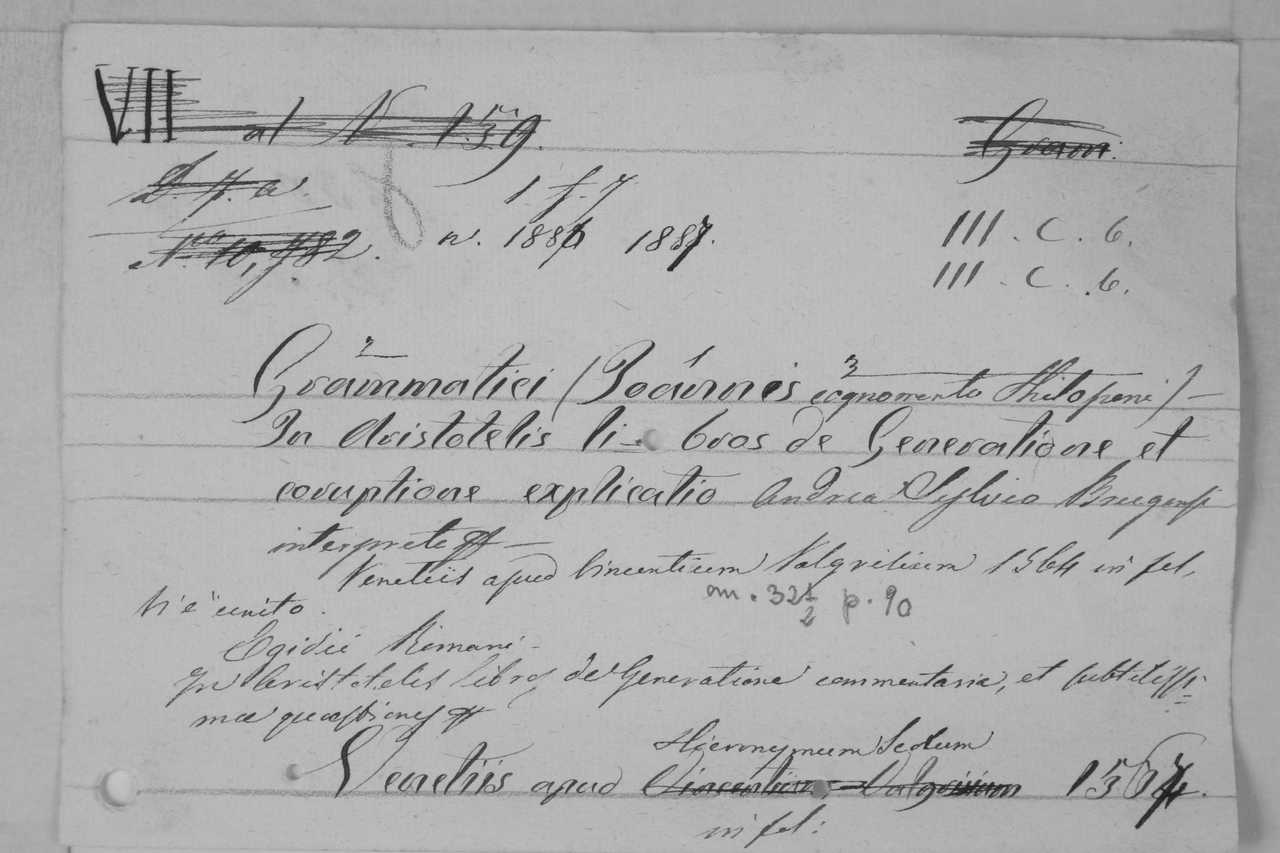 VII al N. 159. Gram.
D. p. a. 1. f. 7
No. 10,982. n. 1886 1887. III. C. 6.
III. C. 6.
Grammatici (Joannis cognomento Philoponi) –
In Aristotelis li- bros de Generatione et
coruptione explicatio Andrea Sylvio Brugensi
interprete –
Venetiis apud Vincentium Valgrisium 1564 in fol.
vi è unito.
m. 32 1/2 p. 90
Egidii Romani –
In Aristotelis libros de Generatione commentaria, et subtilissi=
mae quaestiones
Hieronymum Scotum
Venetiis apud Vincentium Valgrisium 1567.
in fol: